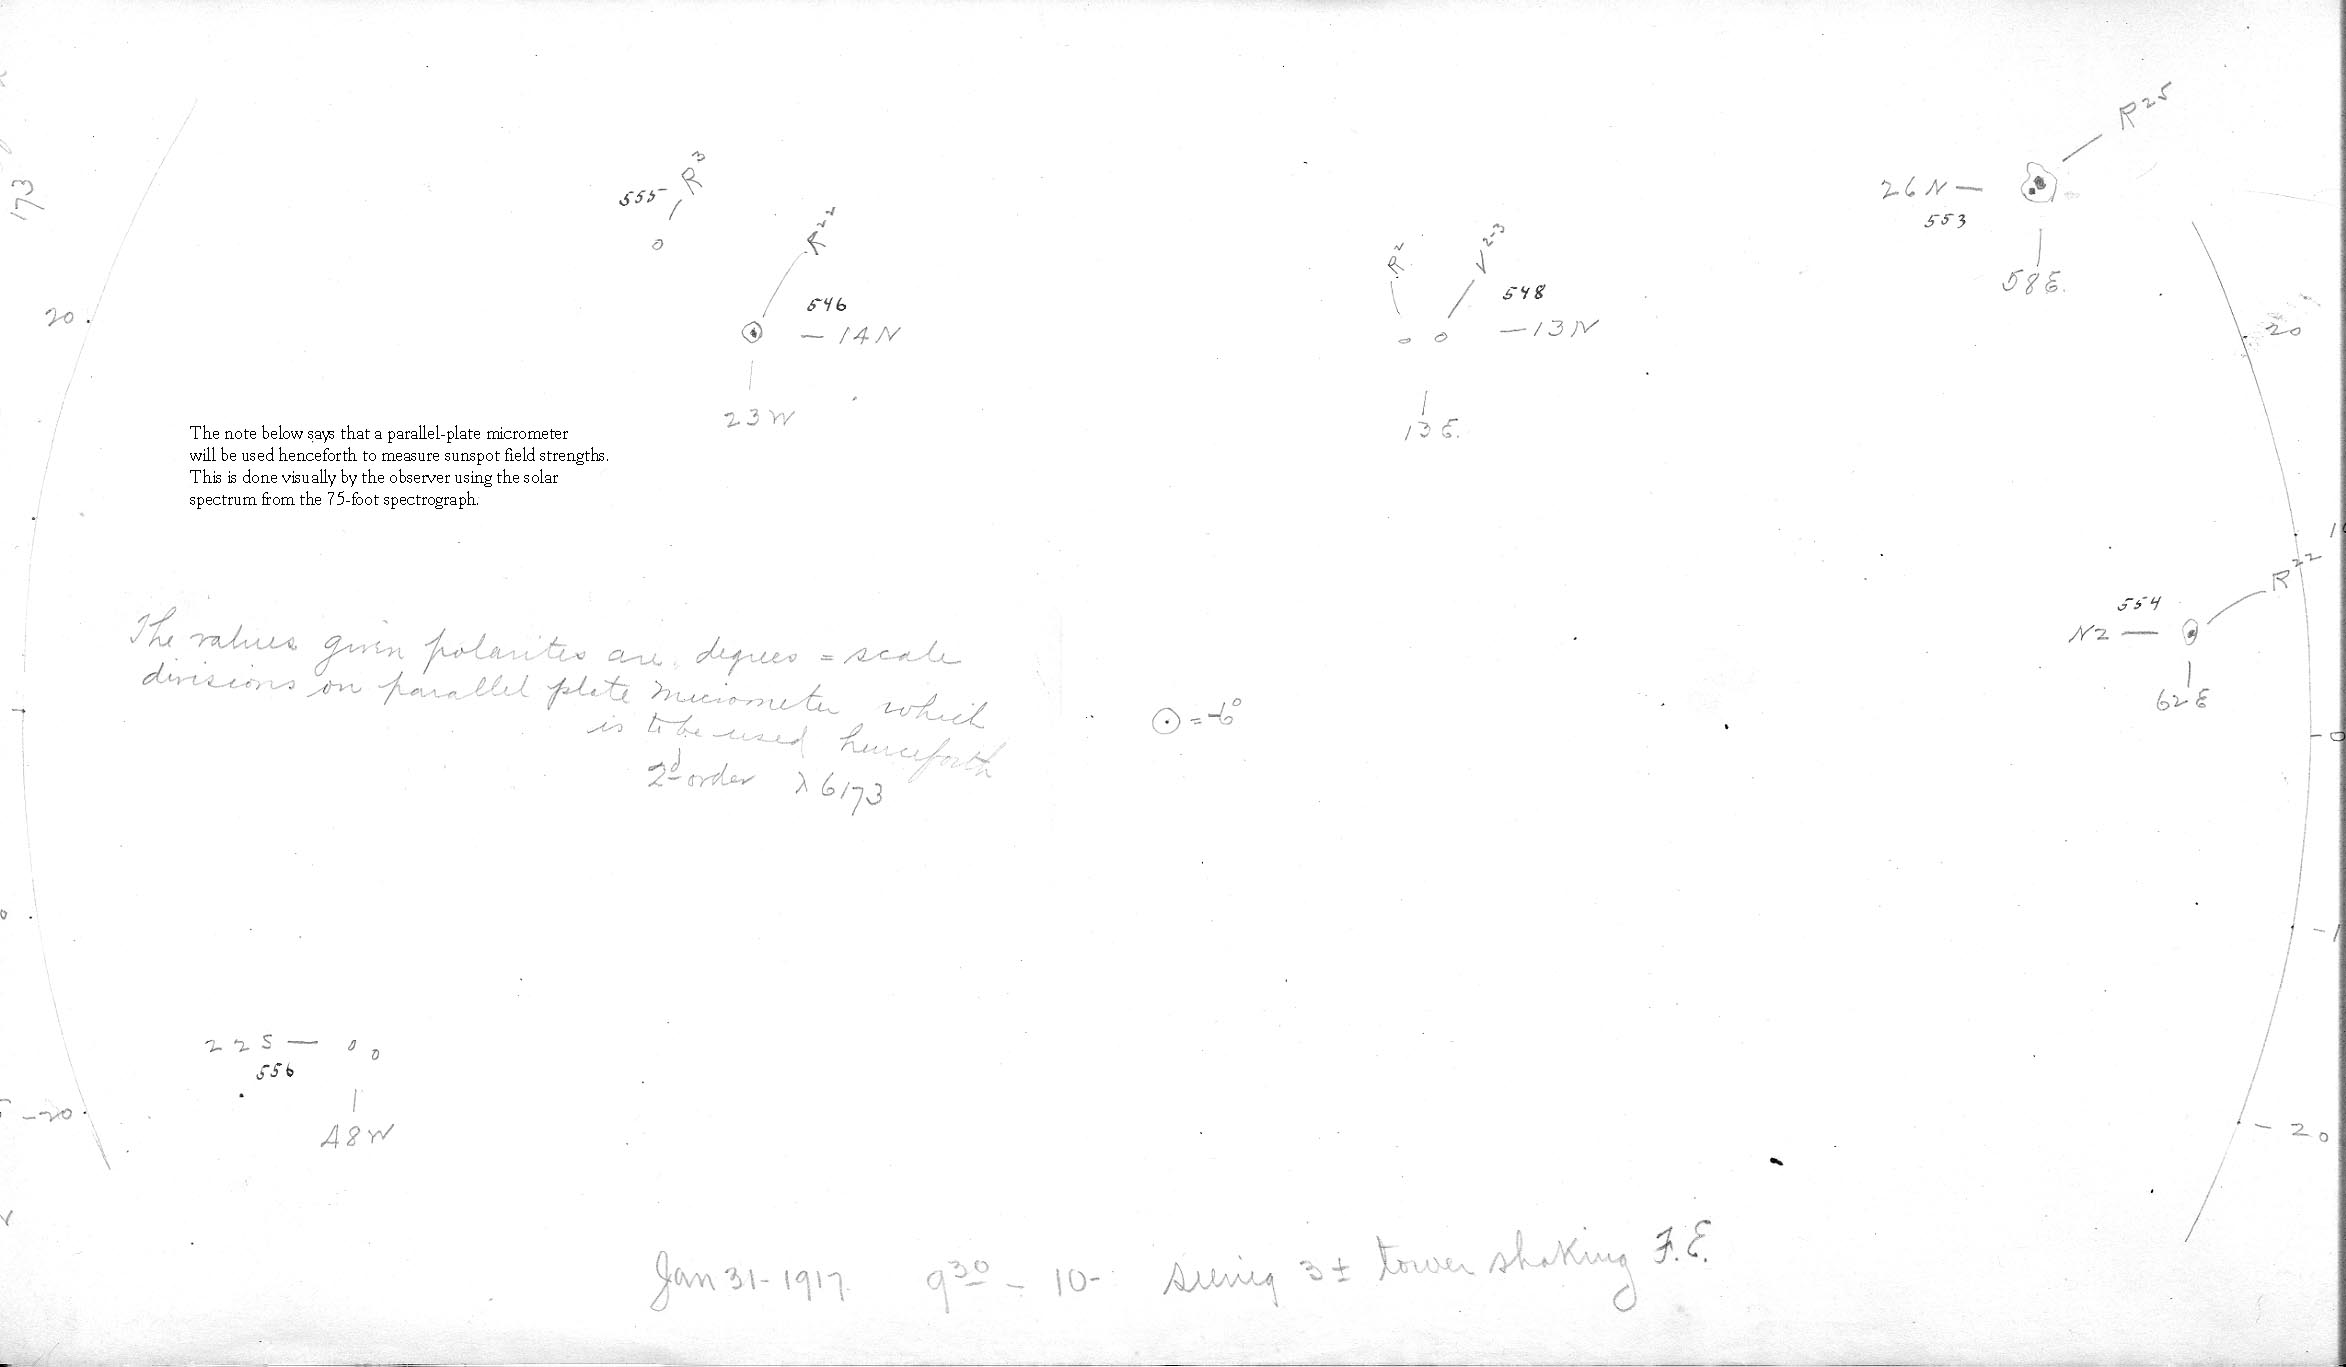 173
R25
555 R3
26N —
553
R22
R2 V2-3
546
548
58E.
20.
— 14N
— 13N
20
23W
13E.
The note below says that a parallel-plate micrometer
will be used henceforth to measure sunspot field strengths.
This is done visually by the observer using the solar
spectrum from the 75-foot spectrograph.
R22
554
N2 —
62E
The values given polarites are degrees = scale
divisions on parallel plate micrometer which
is to be used henceforth
2d order λ 6173
⊙ = -6°
- 0
22S —
556
-20
48W
- 20
Jan 31 - 1917. 9 30 – 10 - seeing 3 ± tower shaking F.E.